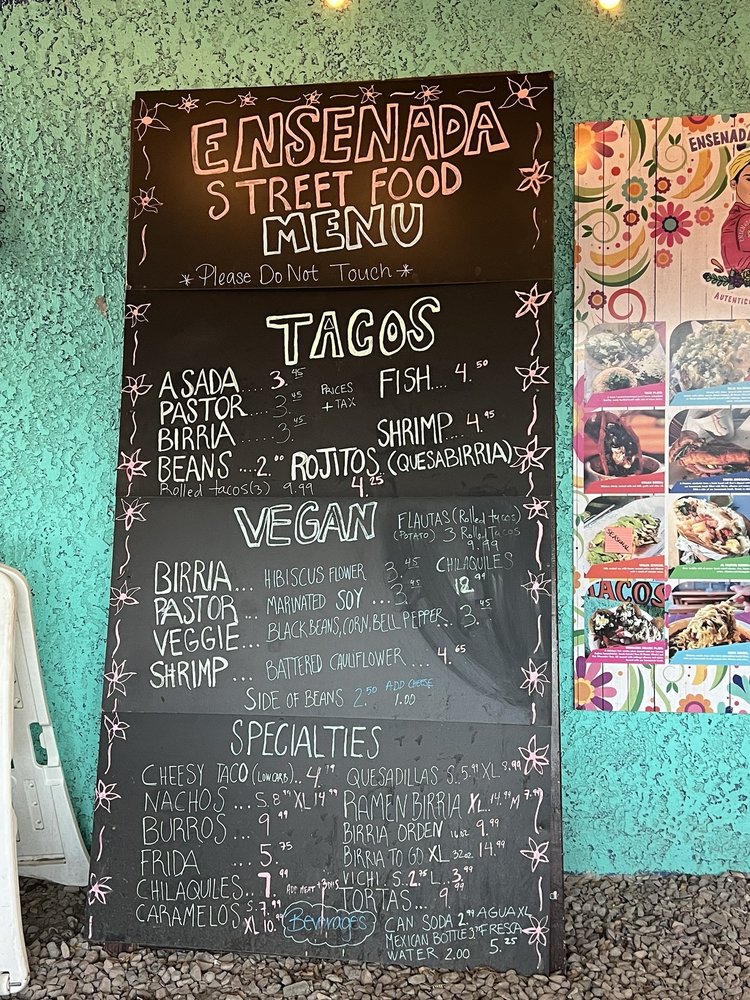 ENSENADA
STREET FOOD
MENU
*Please Do Not Touch*
TACOS
ASADA.... 3.45
PASTOR.... 3.45
BIRRIA.... 3.45
BEANS ....2.00
Rolled tacos(3) 9.99
PRICES
+ TAX
FISH.... 4.50
SHRIMP.... 4.95
ROJITOS..(QUESABIRRIA)
4.25
VEGAN
FLAUTAS (Rolled tacos)
(POTATO) 3 Rolled Tacos
9.99
CHILAQUILES
12.99
BIRRIA... HIBISCUS FLOWER 3.45
PASTOR... MARINATED SOY ... 3.45
VEGGIE... BLACK BEANS, CORN, BELL PEPPER... 3.45
SHRIMP ... BATTERED CAULIFLOWER .... 4.65
SIDE OF BEANS 2.50 ADD CHEESE
1.00
SPECIALTIES
CHEESY TACO (LOW CARB).. 4.79
NACHOS ... S.8.99 XL 14.99
BURROS ... 9.99
FRIDA ... 5.75
CHILAQUILES.. 7.99 ADD MEAT +
CARAMELOS S.7.99
XL 10.99
Beverages
QUESADILLAS S..5.99 XL 8.99
RAMEN BIRRIA XL..14.99 M 7.99
BIRRIA ORDEN 16oz 9.99
BIRRIA TO GO XL 32oz 14.99
VICHI.. S..2.75 L.. 3.99
TORTAS... 9.99
CAN SODA 2.99 AGUA XL
MEXICAN BOTTLE FRESCA
WATER 2.00 5.25
ENSENADA
AUTENTIC
SEASONAL
TACOS